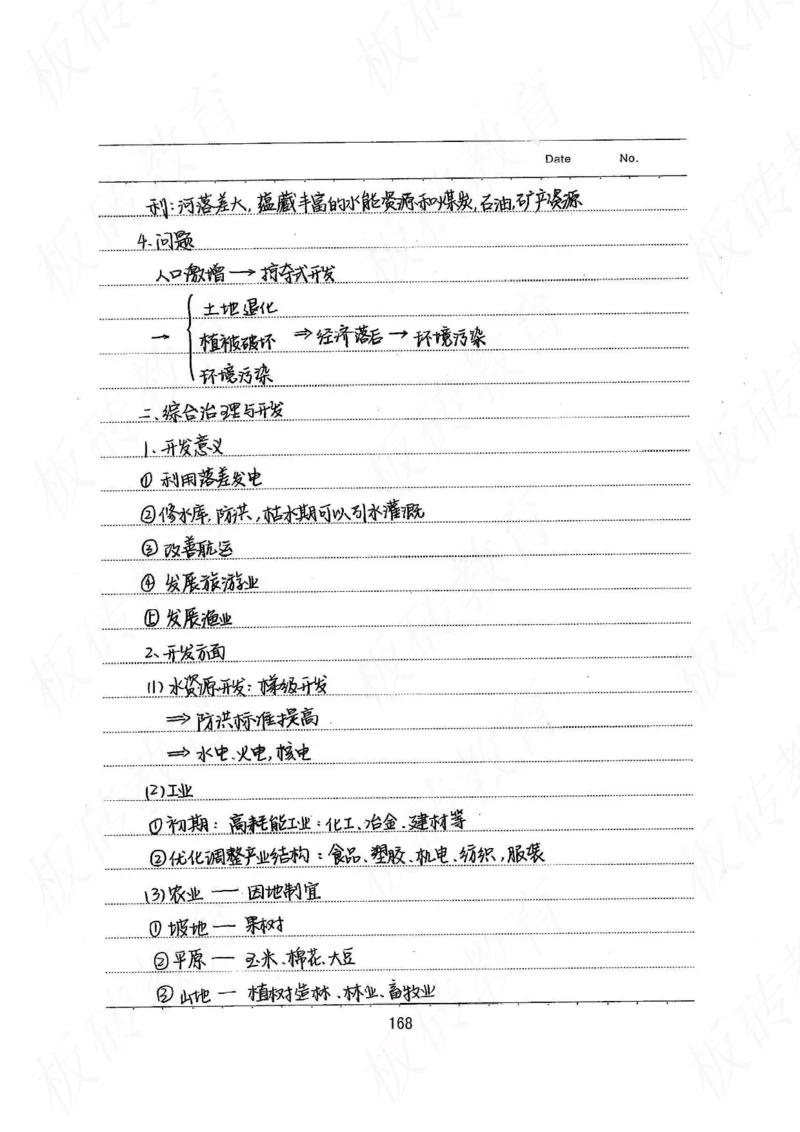 Date No.
利:河落差大,蕴藏丰富的水能资源和煤炭,石油,矿产资源
4.问题
人口激增→掠夺式开发
土地退化
→ 植被破坏 ⇒经济落后→环境污染
环境污染
二、综合治理与开发
1、开发意义
① 利用落差发电
②修水库,防洪,枯水期可以引水灌溉
③ 改善航运
④ 发展旅游业
⑤ 发展渔业
2、开发方面
(1)水资源开发:梯级开发
⇒防洪标准提高
⇒水电、火电,核电
(2)工业
①初期:高耗能工业:化工、冶金、建材等
②优化调整产业结构:食品、塑胶、机电、纺织,服装
(3)农业 — 因地制宜
① 坡地 — 果树
②平原 — 玉米、棉花、大豆
③ 山地 — 植树造林、林业、畜牧业
168
板砖教育